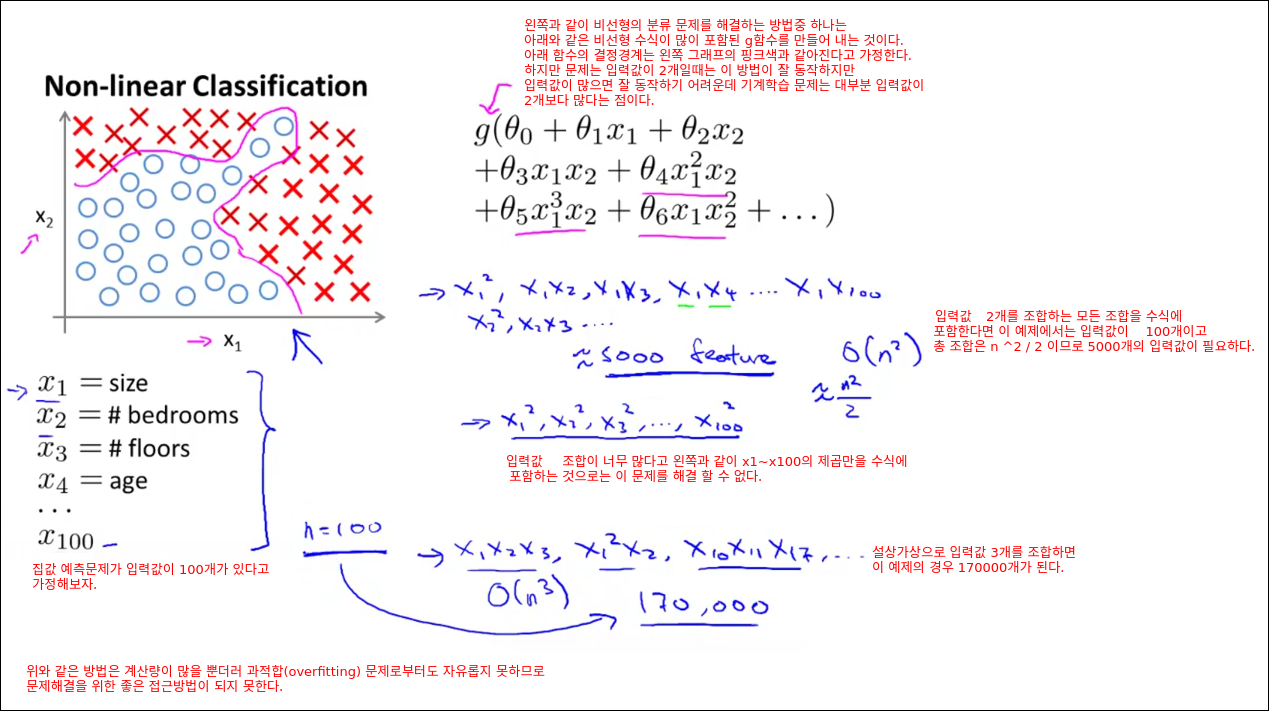 왼쪽과 같이 비선형의 분류 문제를 해결하는 방법중 하나는
아래와 같은 비선형 수식이 많이 포함된 g함수를 만들어 내는 것이다.
아래 함수의 결정경계는 왼쪽 그래프의 핑크색과 같아진다고 가정한다.
하지만 문제는 입력값이 2개일때는 이 방법이 잘 동작하지만
입력값이 많으면 잘 동작하기 어려운데 기계학습 문제는 대부분 입력값이
2개보다 많다는 점이다.
Non-linear Classification
x₂
x₁
g(θ₀ + θ₁x₁ + θ₂x₂
+θ₃x₁x₂ + θ₄x₁²x₂
+θ₅x₁³x₂ + θ₆x₁x₂² + ...)
→ x₁², x₁x₂, x₁x₃, x₁x₄ .... x₁x₁₀₀
x₂², x₂x₃ ....
≈ 5000 feature
O(n²)
≈ n²/2
입력값 2개를 조합하는 모든 조합을 수식에
포함한다면 이 예제에서는 입력값이 100개이고
총 조합은 n ^2 / 2 이므로 5000개의 입력값이 필요하다.
→ x₁², x₂², x₃², ..., x₁₀₀²
입력값 조합이 너무 많다고 왼쪽과 같이 x1~x100의 제곱만을 수식에
포함하는 것으로는 이 문제를 해결 할 수 없다.
x₁ = size
x₂ = # bedrooms
x₃ = # floors
x₄ = age
...
x₁₀₀
집값 예측문제가 입력값이 100개가 있다고
가정해보자.
n=100
→ x₁x₂x₃, x₁²x₂, x₁₀x₁₁x₁₇, ...
O(n³)
170,000
설상가상으로 입력값 3개를 조합하면
이 예제의 경우 170000개가 된다.
위와 같은 방법은 계산량이 많을 뿐더러 과적합(overfitting) 문제로부터도 자유롭지 못하므로
문제해결을 위한 좋은 접근방법이 되지 못한다.